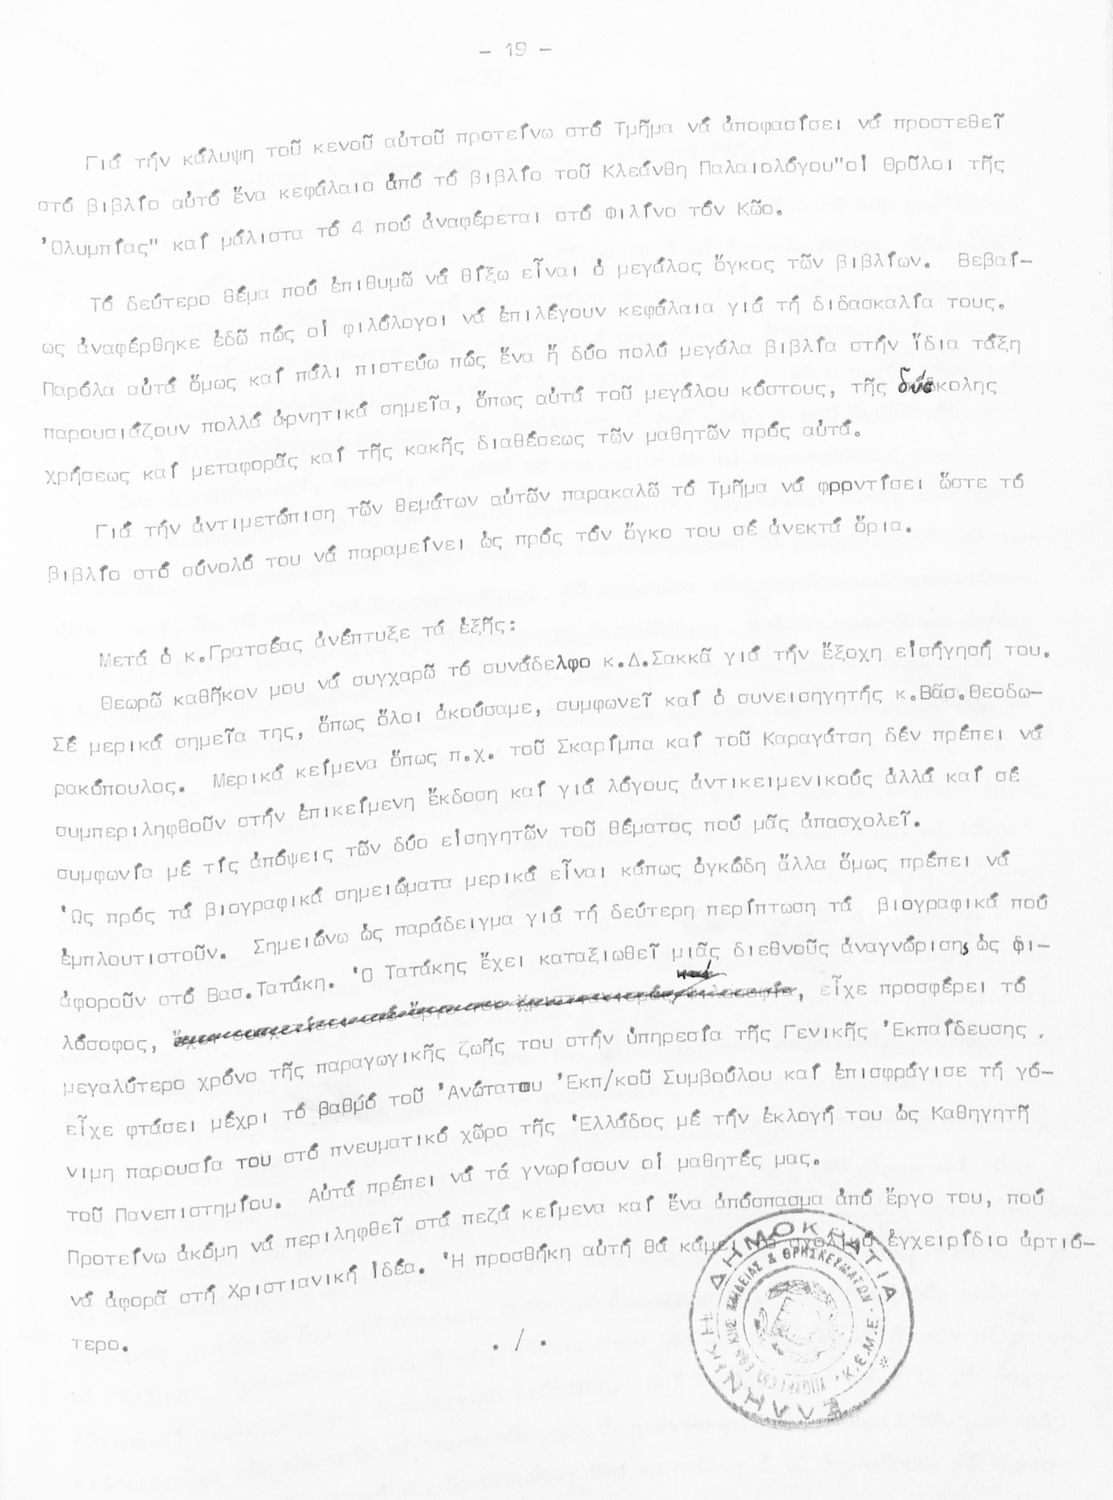 - 19 -
Γιά τήν κάλυψη τοῦ κενοῦ αὐτοῦ προτείνω στό Τμῆμα νά ἀποφασίσει νά προστεθεῖ
στό βιβλίο αὐτό ἕνα κεφάλαιο ἀπό τό βιβλίο τοῦ Κλεάνθη Παλαιολόγου"οἱ Θρῦλοι τῆς
Ὀλυμπίας" καί μάλιστα τό 4 πού ἀναφέρεται στό Φιλῖνο τόν Κῶο.
Τό δεύτερο θέμα πού ἐπιθυμῶ νά θίξω εἶναι ὁ μεγάλος ὄγκος τῶν βιβλίων. Βεβαί-
ως ἀναφέρθηκε ἐδῶ πώς οἱ φιλόλογοι νά ἐπιλέγουν κεφάλαια γιά τή διδασκαλία τους.
Παρόλα αὐτά ὅμως καί πάλι πιστεύω πώς ἕνα ἤ δύο πολύ μεγάλα βιβλία στήν ἴδια τάξη
παρουσιάζουν πολλά ἀρνητικά σημεῖα, ὅπως αὐτά τοῦ μεγάλου κόστους, τῆς δύσκολης
χρήσεως καί μεταφορᾶς καί τῆς κακῆς διαθέσεως τῶν μαθητῶν πρός αὐτά.
Γιά τήν ἀντιμετώπιση τῶν θεμάτων αὐτῶν παρακαλῶ τό Τμῆμα νά φρρντίσει ὥστε τό
βιβλίο στό σύνολό του νά παραμείνει ὡς πρός τόν ὄγκο του σέ ἀνεκτά ὅρια.
Μετά ὁ κ.Γρατσέας ἀνέπτυξε τά ἑξῆς:
Θεωρῶ καθῆκον μου νά συγχαρῶ τό συνάδελφο κ.Δ.Σακκᾶ γιά τήν ἔξοχη εἰσήγησή του.
Σέ μερικά σημεῖα της, ὅπως ὅλοι ἀκούσαμε, συμφωνεῖ καί ὁ συνεισηγητής κ.Βᾶσ.Θεοδω-
ρακόπουλος. Μερικά κείμενα ὅπως π.χ. τοῦ Σκαρίμπα καί τοῦ Καραγάτση δέν πρέπει νά
συμπεριληφθοῦν στήν ἐπικείμενη ἔκδοση καί γιά λόγους ἀντικειμενικούς ἀλλά καί σέ
συμφωνία μέ τίς ἀπόψεις τῶν δύο εἰσηγητῶν τοῦ θέματος πού μᾶς ἀπασχολεῖ.
Ὡς πρός τά βιογραφικά σημειώματα μερικά εἶναι κάπως ὀγκώδη ἄλλα ὅμως πρέπει νά
ἐμπλουτιστοῦν. Σημειώνω ὡς παράδειγμα γιά τή δεύτερη περίπτωση τά βιογραφικά πού
ἀφοροῦν στό Βασ.Τατάκη. Ὁ Τατάκης ἔχει καταξιωθεῖ μιᾶς διεθνοῦς ἀναγνώρισης ὡς φι-
λόσοφος, εἶχε προσφέρει τό
μεγαλύτερο χρόνο τῆς παραγωγικῆς ζωῆς του στήν ὑπηρεσία τῆς Γενικῆς Ἐκπαίδευσης.
εἶχε φτάσει μέχρι τό βαθμό τοῦ Ἀνώτατου Ἐκπ/κοῦ Συμβούλου καί ἐπισφράγισε τή γό-
νιμη παρουσία του στό πνευματικό χῶρο τῆς Ἑλλάδος μέ τήν ἐκλογή του ὡς Καθηγητῆ
τοῦ Πανεπιστημίου. Αὐτά πρέπει νά τά γνωρίσουν οἱ μαθητές μας.
Προτείνω ἀκόμη νά περιληφθεῖ στά πεζά κείμενα καί ἕνα ἀπόσπασμα ἀπό ἔργο του, πού
νά ἀφορᾶ στή Χριστιανική Ἰδέα. Ἡ προσθήκη αὐτή θά κάμει τό σχολικό ἐγχειρίδιο ἀρτιό-
τερο.
./.
ΕΛΛΗΝΙΚΗ ΔΗΜΟΚΡΑΤΙΑ
ΥΠΟΥΡΓΕΙΟ ΕΘΝΙΚΗΣ ΠΑΙΔΕΙΑΣ & ΘΡΗΣΚΕΥΜΑΤΩΝ · Κ.Ε.Μ.Ε.